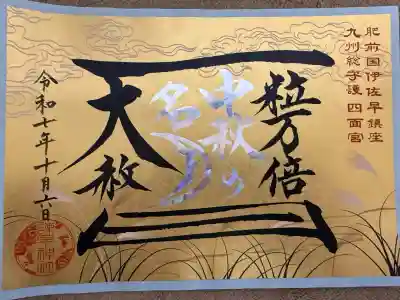 肥前国伊佐早鎮座
九州総守護 四面宮
粒万倍
中秋の
名月
天赦
令和七年十月六日